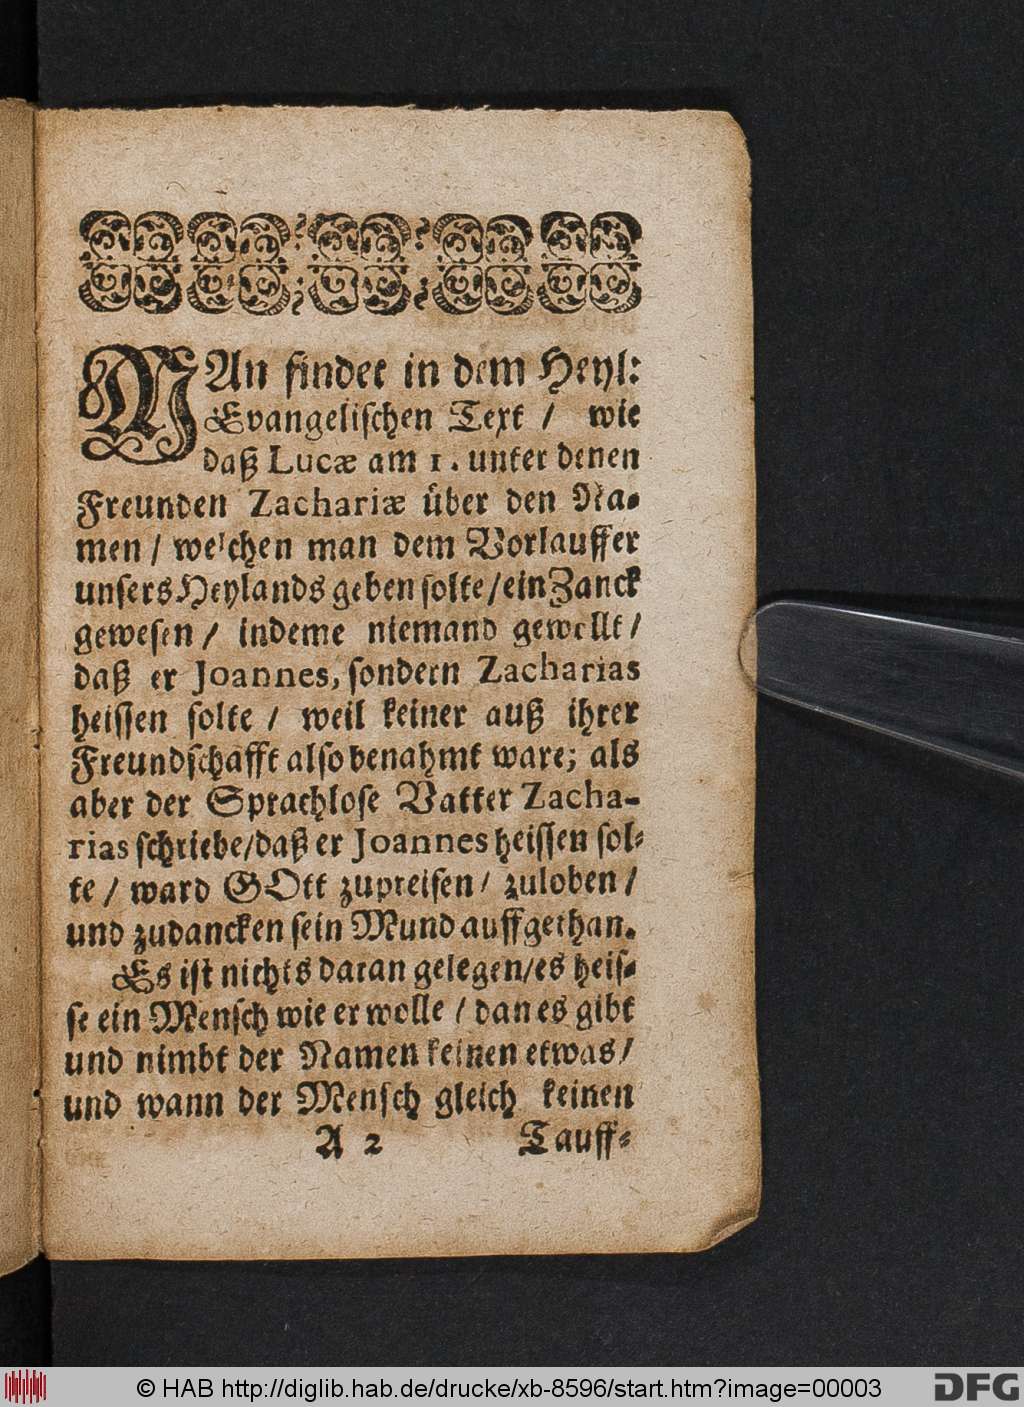 MAn findet in dem Heyl:
Evangelischen Text / wie
daß Lucæ am 1. unter denen
Freunden Zachariæ über den Na-
men / welchen man dem Vorlauffer
unsers Heylands geben solte / ein Zanck
gewesen / indeme niemand gewollt /
daß er Joannes, sondern Zacharias
heissen solte / weil keiner auß ihrer
Freundschafft also benahmt ware; als
aber der Sprachlose Vatter Zacha-
rias schriebe / daß er Joannes heissen sol-
te / ward GOtt zupreisen / zuloben /
und zudancken sein Mund auffgethan.
Es ist nichts daran gelegen / es heis-
se ein Mensch wie er wolle / dan es gibt
und nimbt der Namen keinen etwas /
und wann der Mensch gleich keinen
A 2 Tauff-
© HAB http://diglib.hab.de/drucke/xb-8596/start.htm?image=00003 DFG